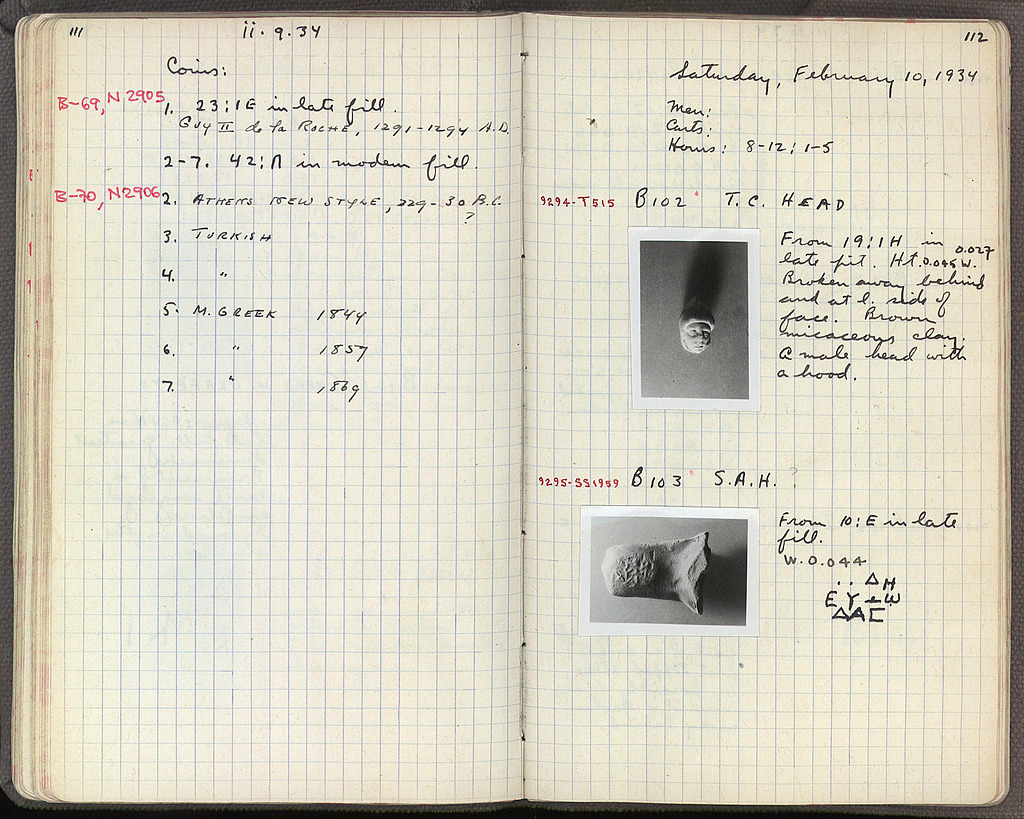 111
ii. 9. 34
Coins:
B-69, N2905 1. 23:ΙΕ in late fill.
GUY II de la ROCHE, 1291-1294 A.D.
2-7. 42:Λ in modern fill.
B-70, N2906 2. ATHENS NEW STYLE, 229-30 B.C.
?
3. TURKISH
4. "
5. M. GREEK 1844
6. " 1857
7. " 1869
112
Saturday, February 10, 1934
Men:
Carts:
Hours: 8-12; 1-5
9294-T515 B102 T.C. HEAD
From 19:ΙΗ in
late pit. Ht. 0.045 W. 0.027
Broken away behind
and at l. side of
face. Brown
micaceous clay.
A male head with
a hood.
9295-SS1959 B103 S.A.H. ?
From 10:E in late
fill.
W. 0.044
. . ΔΗ
ΔΑΣ